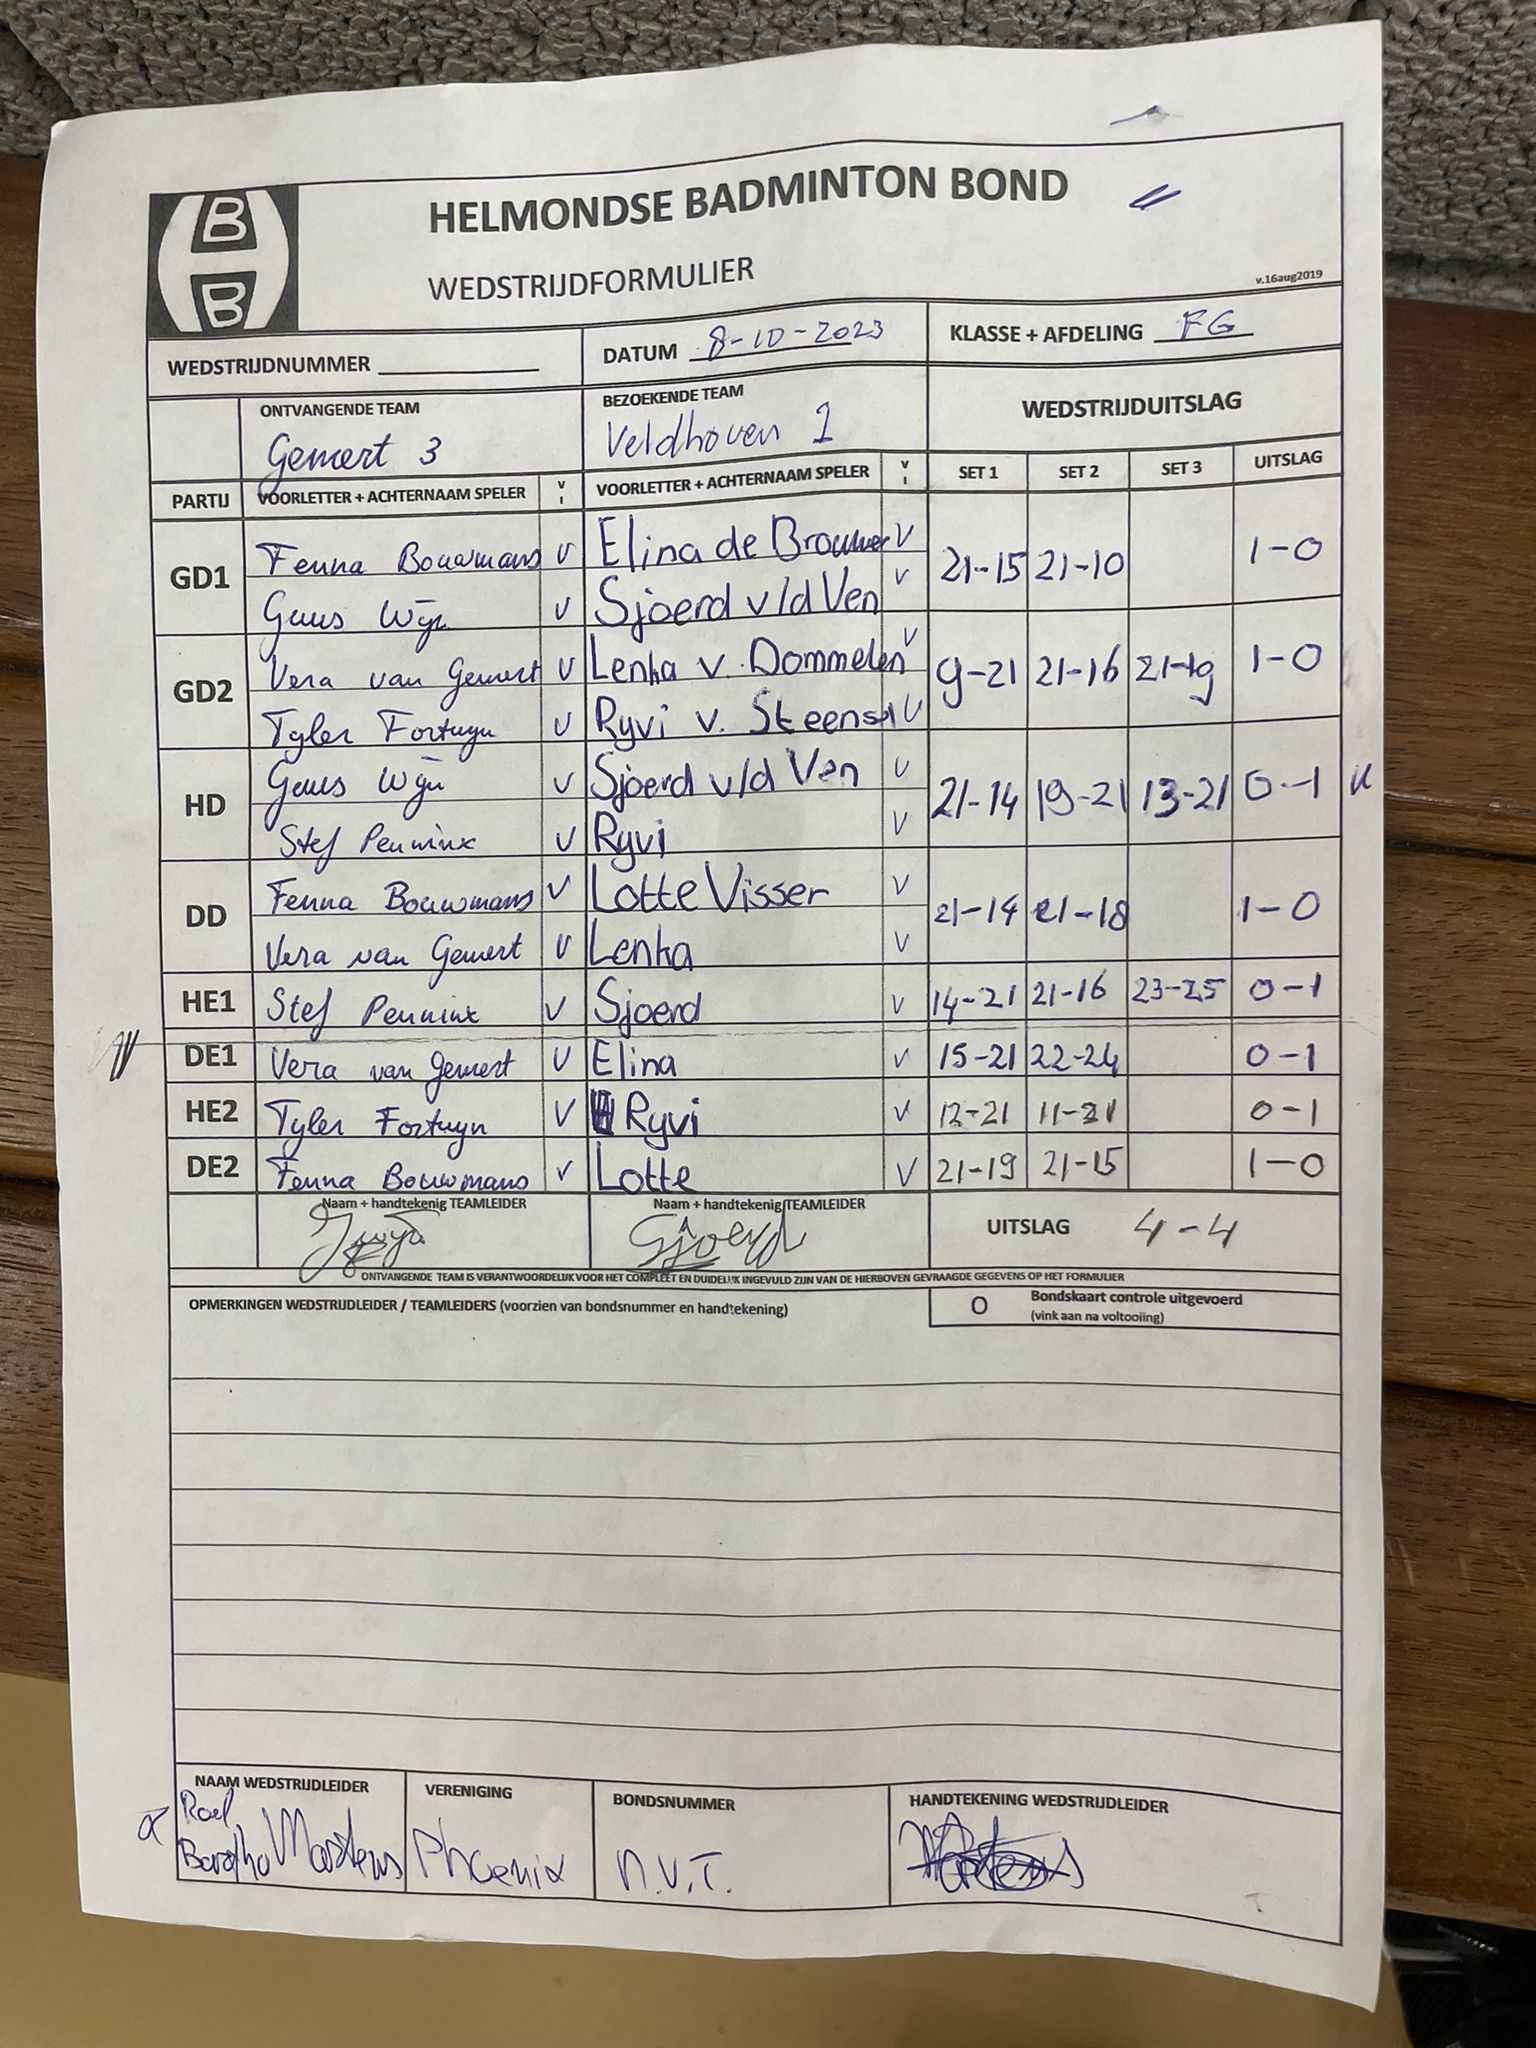 HELMONDSE BADMINTON BOND
WEDSTRIJDFORMULIER
v.16aug2019
B
B
WEDSTRIJDNUMMER DATUM 8-10-2023 KLASSE + AFDELING FG
ONTVANGENDE TEAM BEZOEKENDE TEAM WEDSTRIJDUITSLAG
Gemert 3 Veldhoven 1
PARTIJ VOORLETTER + ACHTERNAAM SPELER V I VOORLETTER + ACHTERNAAM SPELER V I SET 1 SET 2 SET 3 UITSLAG
GD1 Fenna Bouwmans V Elina de Brouwer V 21-15 21-10 1-0
Guus Wijn V Sjoerd v/d Ven V
GD2 Vera van Gemert V Lenka v. Dommelen V 9-21 21-16 21-19 1-0
Tyler Fortuyn V Ryvi v. Steensel V
HD Guus Wijn V Sjoerd v/d Ven V 21-14 19-21 13-21 0-1
Stef Penninx V Ryvi V
DD Fenna Bouwmans V Lotte Visser V 21-14 21-18 1-0
Vera van Gemert V Lenka V
HE1 Stef Penninx V Sjoerd V 14-21 21-16 23-25 0-1
DE1 Vera van Gemert V Elina V 15-21 22-24 0-1
HE2 Tyler Fortuyn V Ryvi V 12-21 11-21 0-1
DE2 Fenna Bouwmans V Lotte V 21-19 21-15 1-0
Naam + handtekenig TEAMLEIDER Naam + handtekenig TEAMLEIDER UITSLAG 4-4
Sjoerd
ONTVANGENDE TEAM IS VERANTWOORDELIJK VOOR HET COMPLEET EN DUIDELIJK INGEVULD ZIJN VAN DE HIERBOVEN GEVRAAGDE GEGEVENS OP HET FORMULIER
OPMERKINGEN WEDSTRIJDLEIDER / TEAMLEIDERS (voorzien van bondsnummer en handtekening) O Bondskaart controle uitgevoerd
(vink aan na voltooiing)
NAAM WEDSTRIJDLEIDER VERENIGING BONDSNUMMER HANDTEKENING WEDSTRIJDLEIDER
Roel
Martens Phoenix n.v.T.